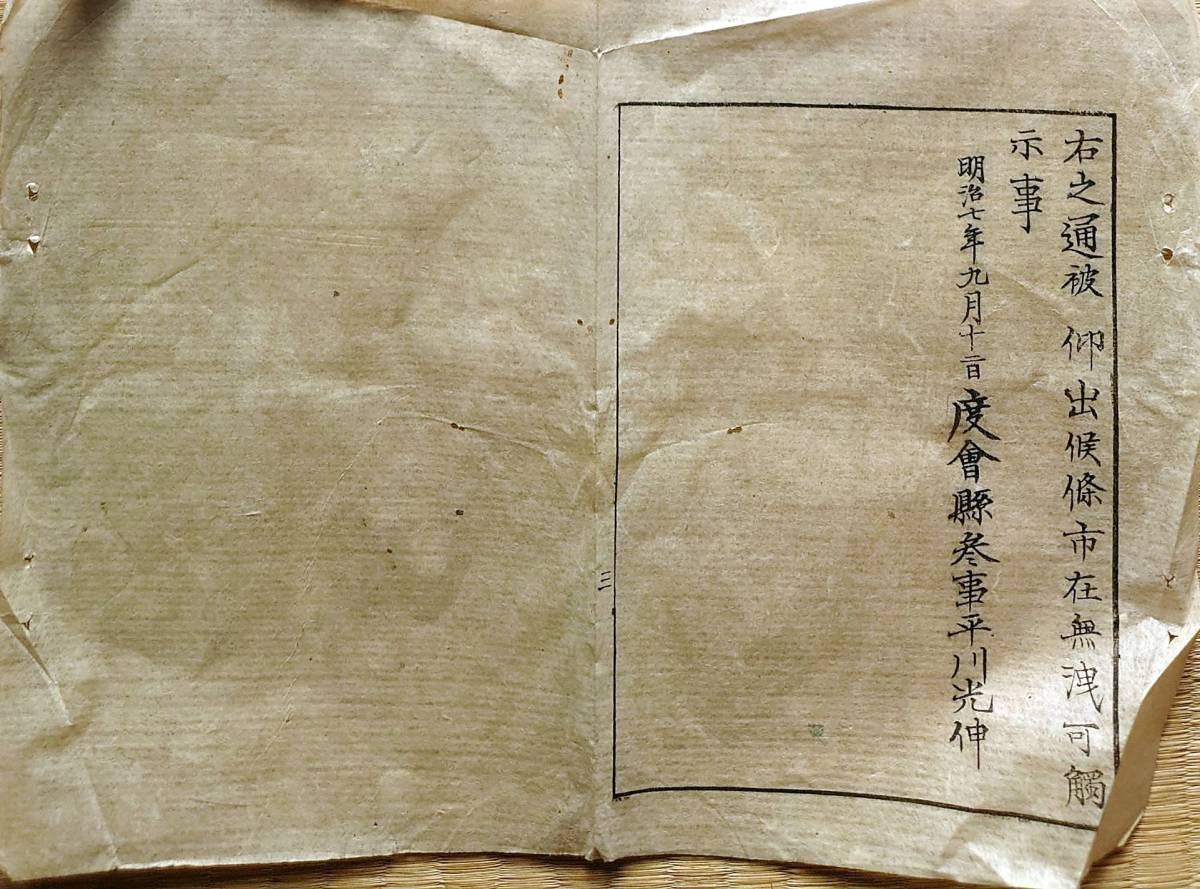 右之通被 仰出候條市在無洩可觸
示事
明治七年九月十二日 度會縣參事平川光伸
三